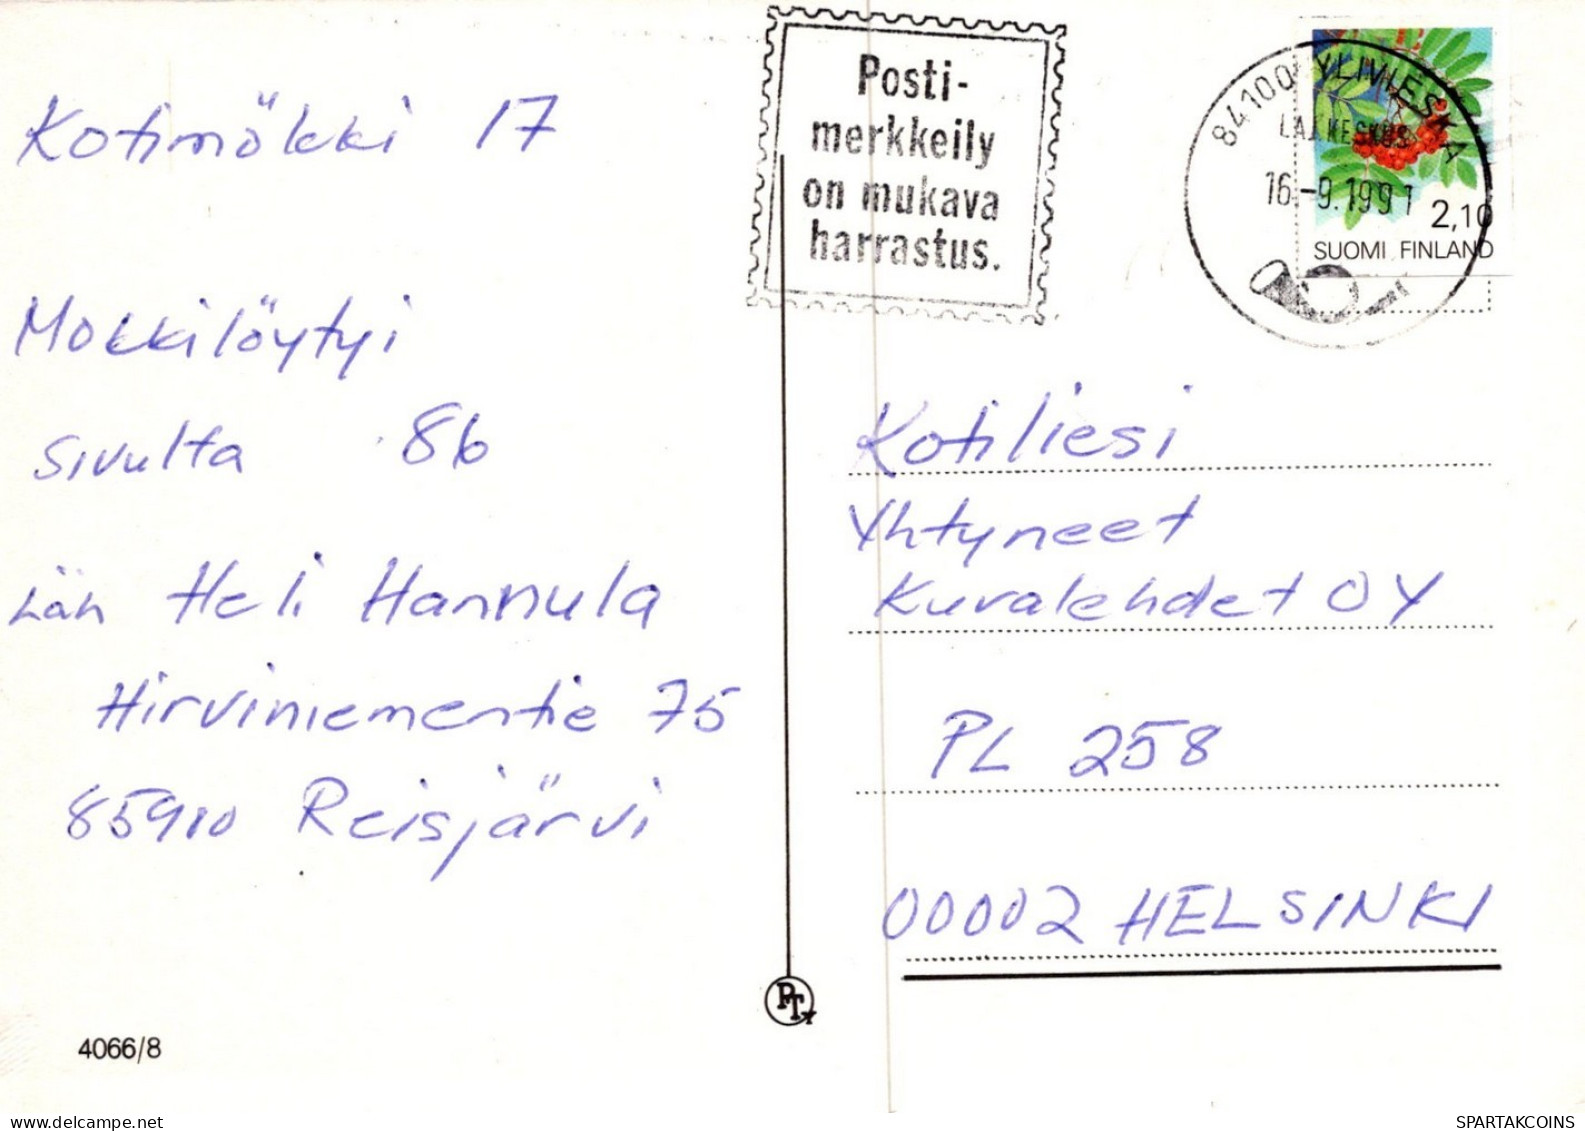 Kotimökki 17
Mökkilöytyi
sivulta 86
Läh Heli Hannula
Hirviniementie 75
85910 Reisjärvi
4066/8
Posti-
merkkeily
on mukava
harrastus.
84100 YLIVIESKA
LAJ KESKUS
16.-9.1991
2,10
SUOMI FINLAND
Kotiliesi
Yhtyneet
Kuvalehdet OY
PL 258
00002 HELSINKI
PTY
delcampe.net
SPARTAKCOINS